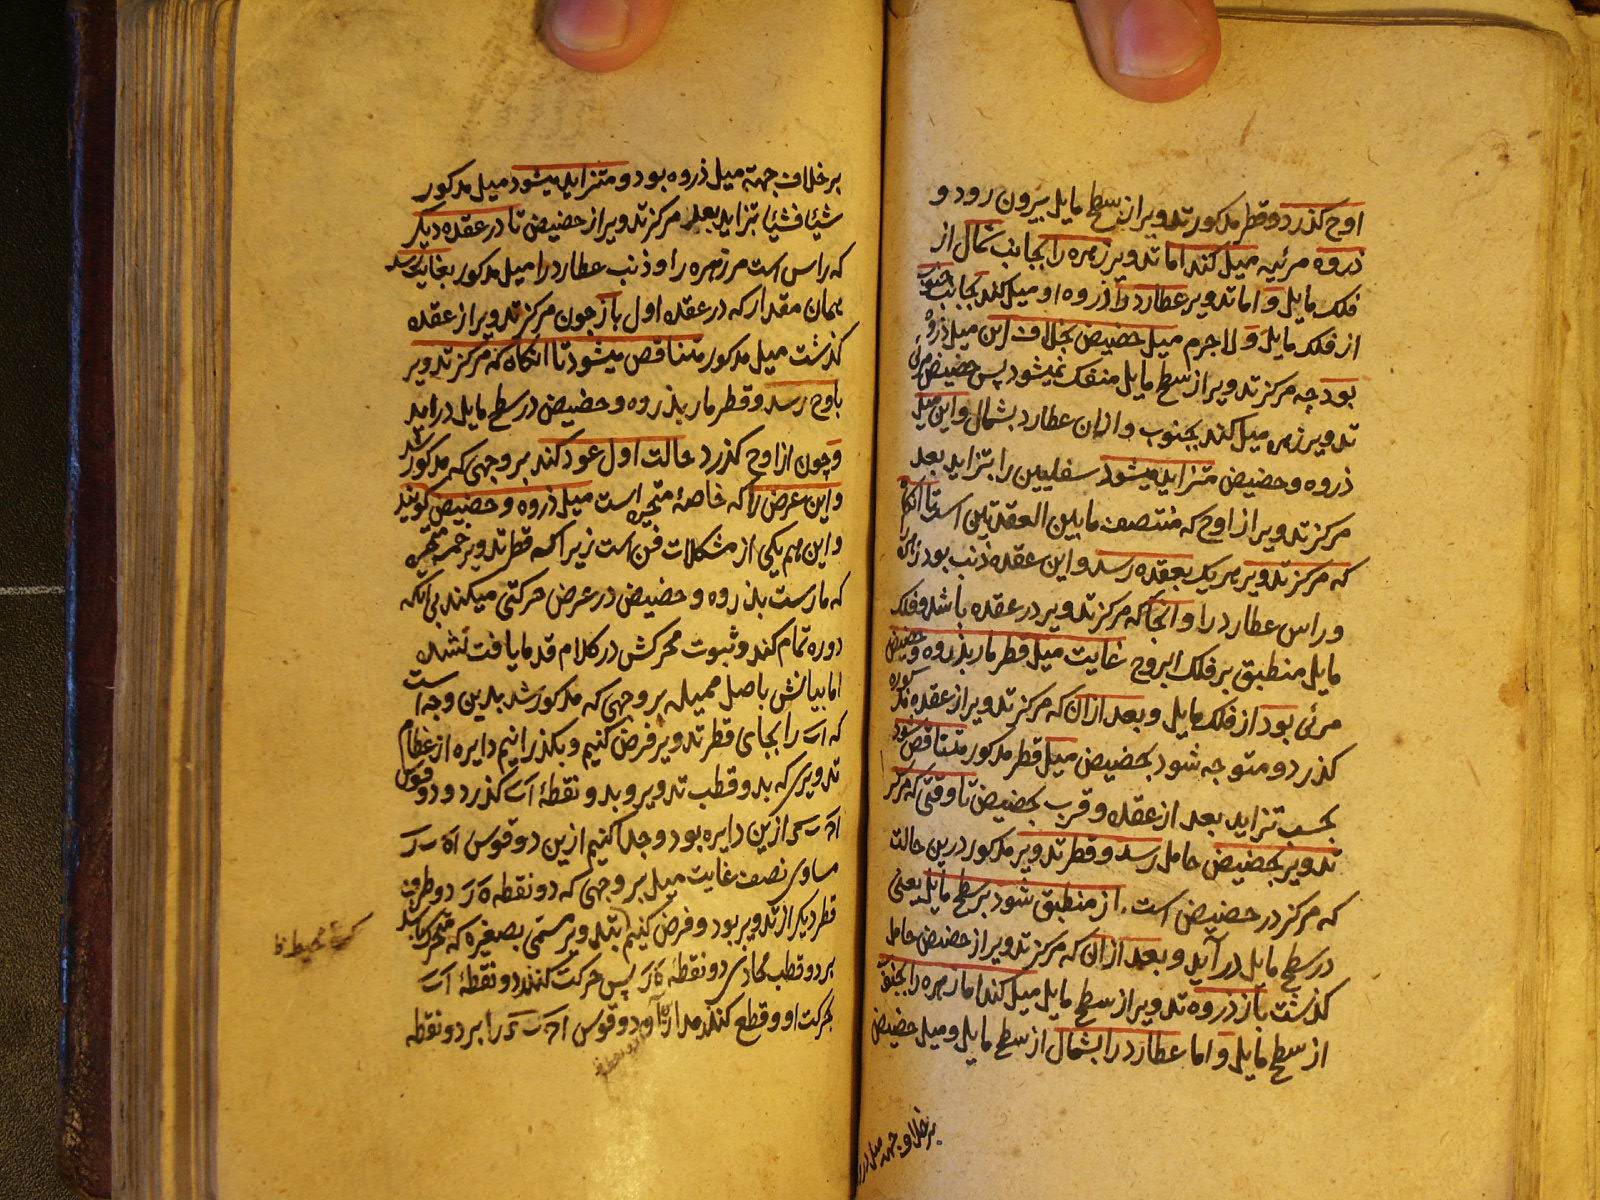 اوج گذرد و قطر مذکور تدویر از سطح مایل بیرون رود و
ذروه مرئیه میل کند اما تدویر زهره را بجانب شمال از
فلک مایل و اما تدویر عطارد را ذروه او میل کند بجانب جنوب
از فلک مایل و لاجرم میل حضیض بخلاف این میل ذروه
بود چه مرکز تدویر از سطح مایل منفک نمیشود پس حضیض مرئی
تدویر زهره میل کند بجنوب و ازان عطارد بشمال و این میل
ذروه و حضیض متزاید میشود سفلیین را بتزاید بعد
مرکز تدویر از اوج که منتصف مابین العقدتین است تا آنگاه
که مرکز تدویر هریک بعقده رسد و این عقده ذنب بود زهره را
و راس عطارد را و آنجا که مرکز تدویر در عقده باشد و فلک
مایل منطبق بر فلک البروج غایت میل قطر مار بذروه و حضیض
مرئی بود از فلک مایل و بعد ازان که مرکز تدویر از عقده مذکوره
گذرد و متوجه شود بحضیض میل قطر مذکور متناقص شود
بحسب تزاید بعد از عقده و قرب بحضیض تا وقتی که مرکز
تدویر بحضیض حامل رسد و قطر تدویر مذکور درین حالت
که مرکز در حضیض است از منطبق شود بر سطح مایل یعنی
در سطح مایل در آید و بعد ازان که مرکز تدویر از حضیض حامل
گذشت باز ذروه تدویر از سطح مایل میل کند اما زهره را بجنوب
از سطح مایل و اما عطارد را بشمال از سطح مایل و میل حضیض
بر خلاف جهة میل ذروه
بر خلاف جهة میل ذروه بود و متزاید میشود میل مذکور
شیئا فشیئا بتزاید بعد مرکز تدویر از حضیض تا در عقده دیگر
که راس است مر زهره را و ذنب عطارد را میل مذکور بغایت رسد
بهمان مقدار که در عقده اول باز چون مرکز تدویر از عقده
گذشت میل مذکور متناقص میشود تا آنگاه که مرکز تدویر
باوج رسد و قطر مار بذروه و حضیض در سطح مایل در اید
و چون از اوج گذرد حالت اول عود کند بر وجهی که مذکور شد
و این عرض را که خاصهٔ متحیره است میل ذروه و حضیض گویند
و این هم یکی از مشکلات فن است زیرا که قطر تدویر خمسه متحیره
که مارست بذروه و حضیض در عرض حرکتی میکند بی آنکه
دوره تمام کند و ثبوت محرکش در کلام قدما یافت نشده
اما بیانش باصل ممیله بر وجهی که مذکور شد بدین وجه است
که اب را بجای قطر تدویر فرض کنیم و بگذرانیم دایره از عظام
تدویری که بدو قطب تدویر و بدو نقطهٔ اب گذرد و دو قوس
ازین دایره بود و جدا کنیم ازین دو قوس
مساوی نصف غایت میل بر وجهی که دو نقطه دو طرف
قطر دیگر از تدویر بود و فرض کنیم تدویر مسمی بصغیره که متحرک باشد
بر دو قطب محاذی دو نقطه پس حرکت کنند دو نقطهٔ اب
بحرکت او و قطع کنند مدار دو قوس را بر دو نقطه